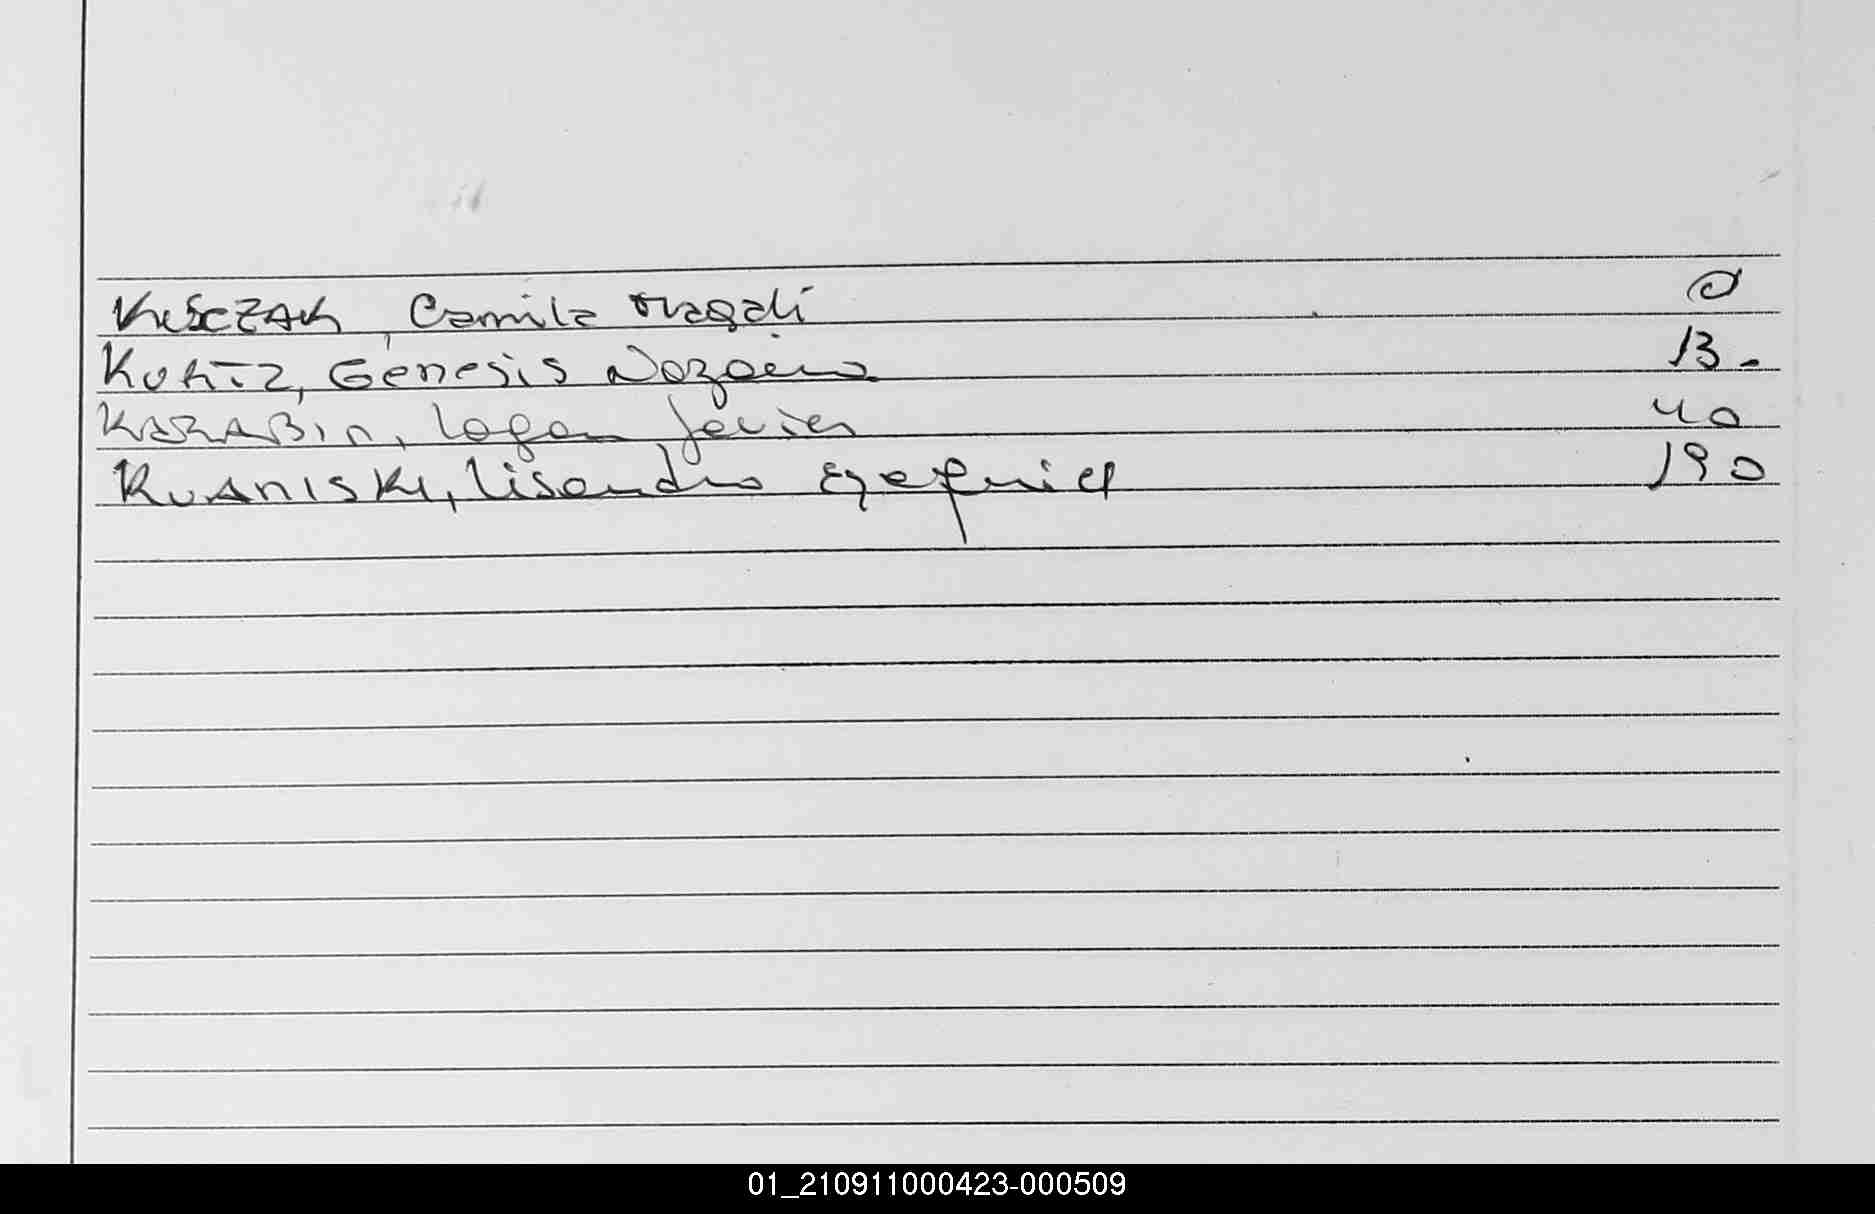 KUSCZAK, Camila Magali 0
KURTZ, Génesis Nazaena 13-
KARABIN, Logan Javier 40
KUANISKI, Lisandro Ezequiel 190
01_210911000423-000509